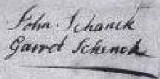 John Schanck
Garret Schenck